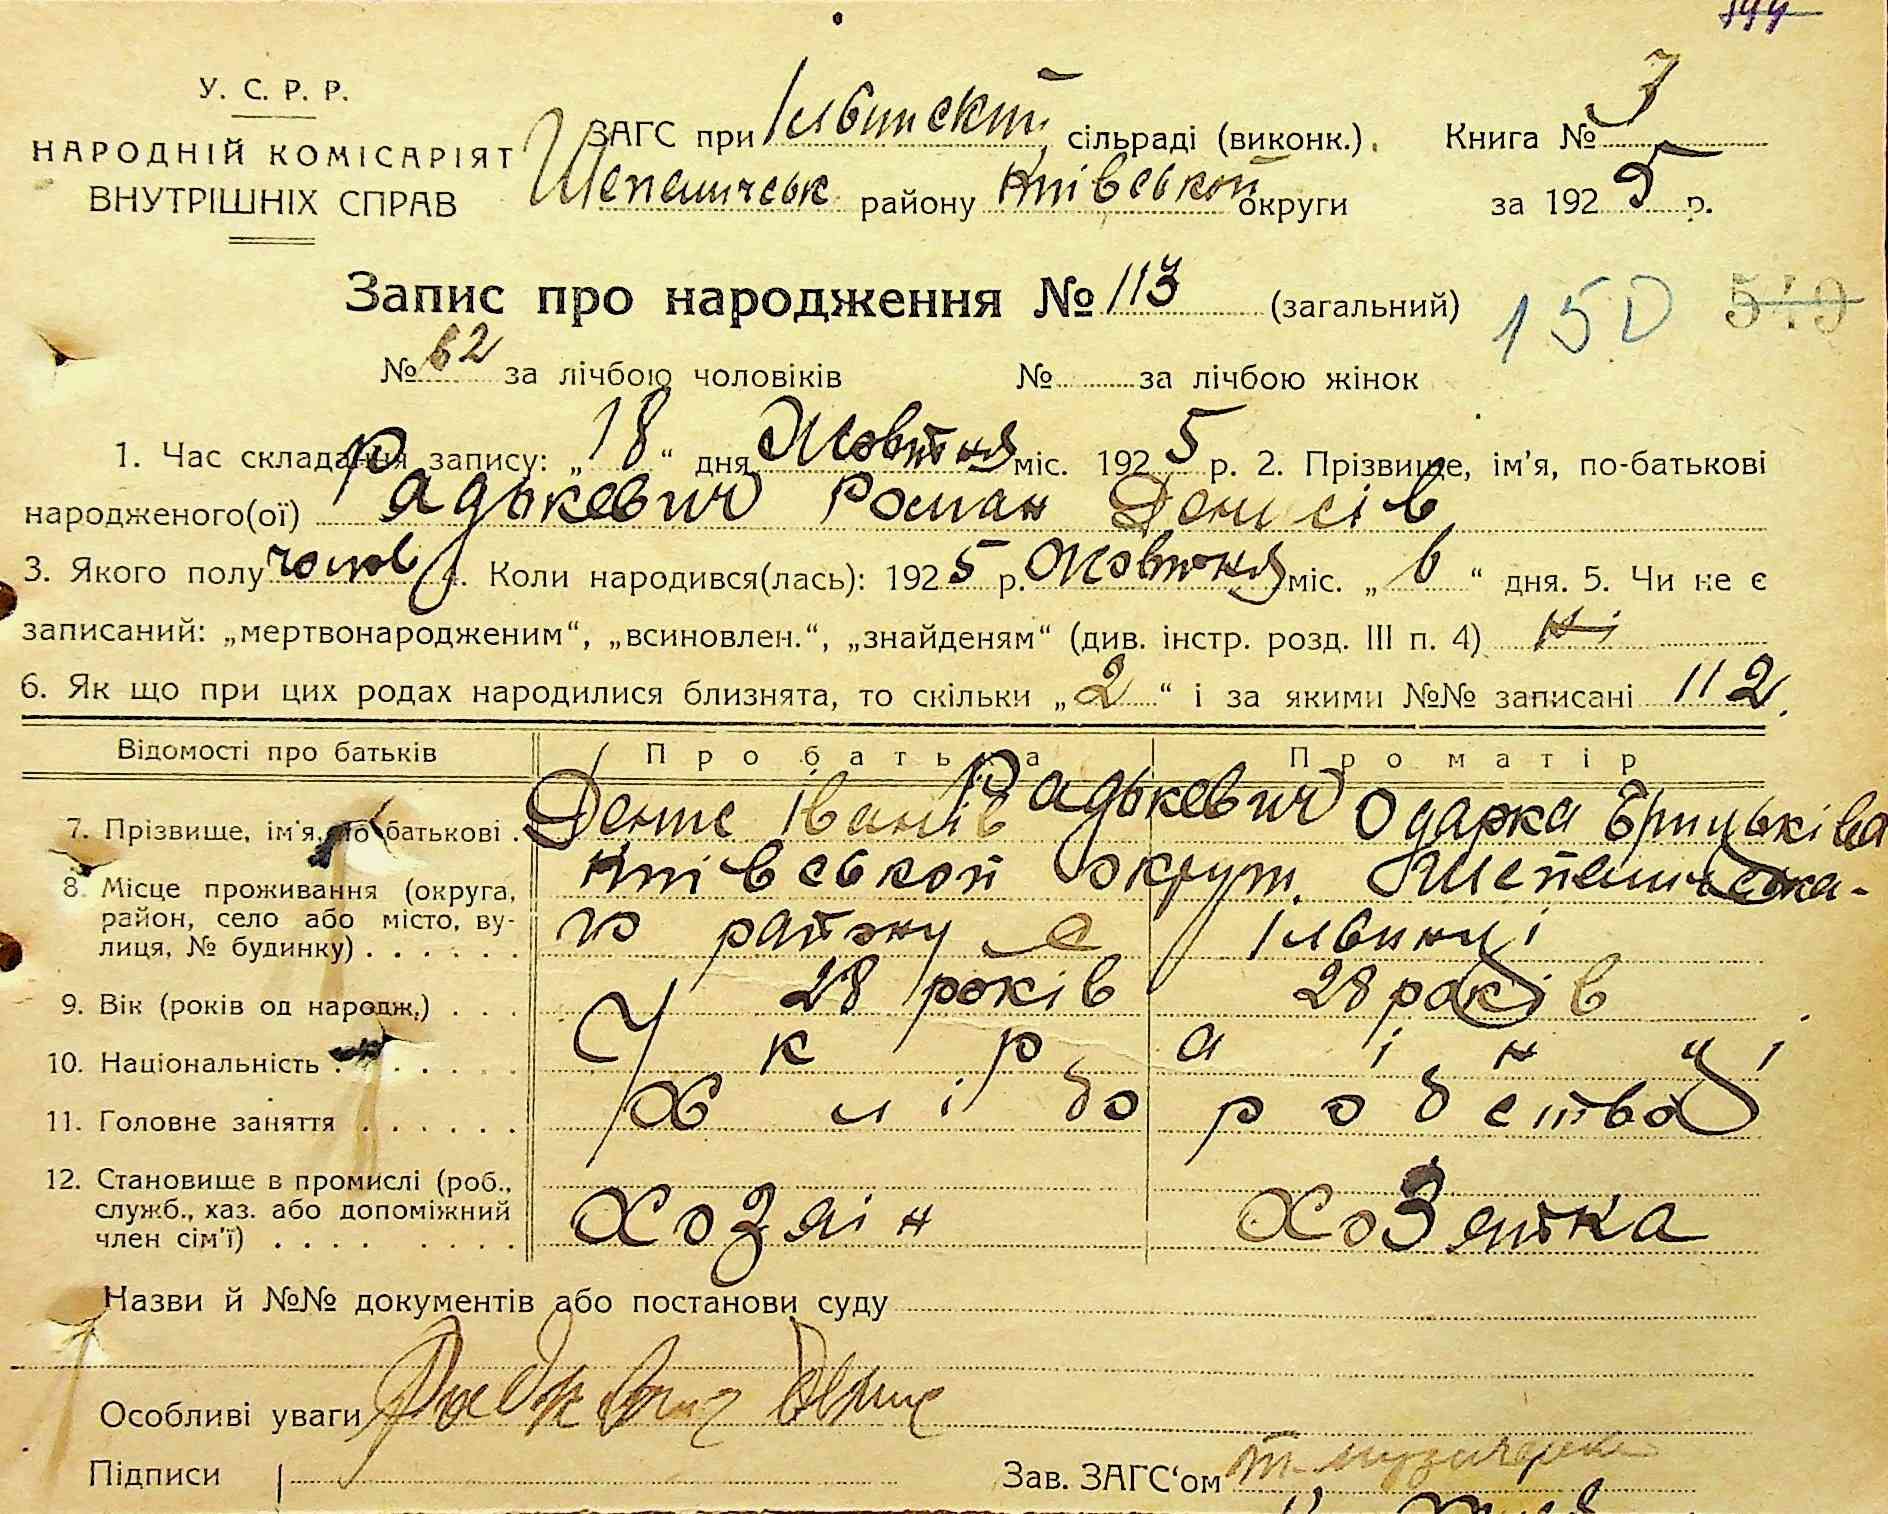 У. С. Р. Р.
НАРОДНІЙ КОМІСАРІЯТ
ВНУТРІШНІХ СПРАВ
ЗАГС при Ільвинский сільраді (виконк.). Книга № 3
Шепеличськ району Київської округи за 1925 р.
Запис про народження № 113 (загальний) 150 549
№ 62 за лічбою чоловіків № за лічбою жінок
1. Час складання запису: „18“ дня Жовтня міс. 1925 р. 2. Прізвище, ім'я, по-батькові
народженого(ої) Радькевич Роман Денисів
3. Якого полу чолов 4. Коли народився(лась): 1925 р. Жовтня міс. „6“ дня. 5. Чи не є
записаний: „мертвонародженим“, „всиновлен.“, „знайденям“ (див. інстр. розд. III п. 4) Ні
6. Як що при цих родах народилися близнята, то скільки „2“ і за якими №№ записані 112
Відомості про батьків Про батька Про матір
7. Прізвище, ім'я, по батькові . Денис Іванів Радькевич Одарка Грицьківа
8. Місце проживання (округа, район, село або місто, вулиця, № будинку) . . . . . . Київської округи Шепеличська-
го району с Ільвинці
9. Вік (років од народж.) . . . 28 років 28 років
10. Національність . . . . . . . Українці
11. Головне заняття . . . . . . Хліборобство
12. Становище в промислі (роб., служб., хаз. або допоміжний член сім'ї) . . . . . . . . Хозяін Хозяйка
Назви й №№ документів або постанови суду
Особливі уваги Радкевич Денис
Підписи Зав. ЗАГС'ом